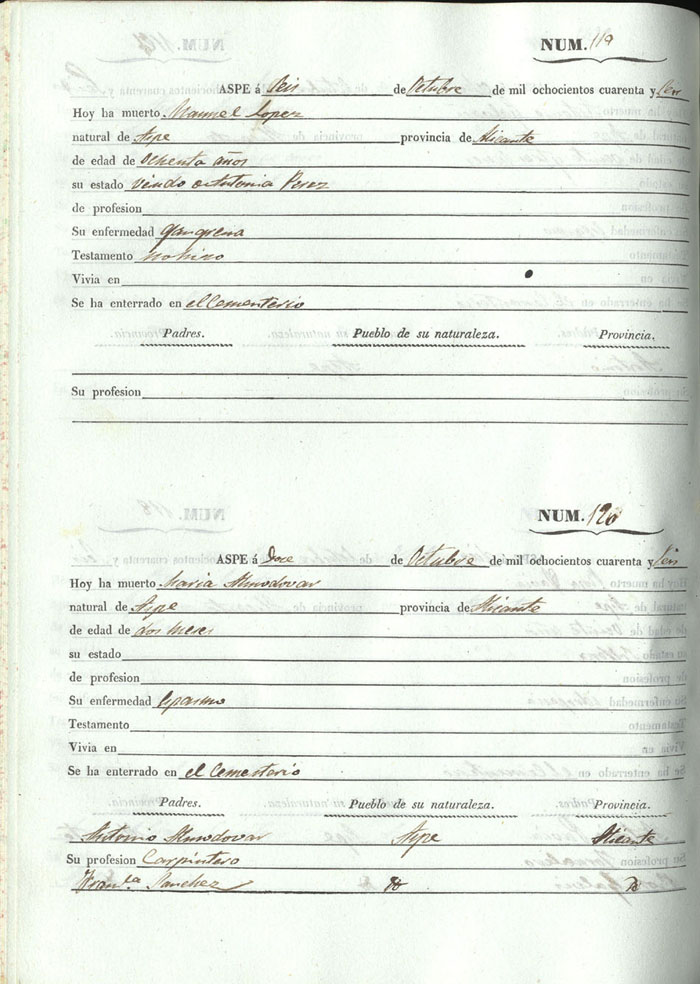 NUM. 119
ASPE á Seis de Octubre de mil ochocientos cuarenta y seis
Hoy ha muerto Manuel Lopez
natural de Aspe provincia de Alicante
de edad de ochenta años
su estado viudo de Antonia Perez
de profesion
Su enfermedad gangrena
Testamento no hizo
Vivia en
Se ha enterrado en el Cementerio
Padres. Pueblo de su naturaleza. Provincia.
Su profesion
NUM. 120
ASPE á Doce de Octubre de mil ochocientos cuarenta y seis
Hoy ha muerto Maria Almodovar
natural de Aspe provincia de Alicante
de edad de dos meses
su estado
de profesion
Su enfermedad espasmo
Testamento
Vivia en
Se ha enterrado en el Cementerio
Padres. Pueblo de su naturaleza. Provincia.
Antonio Almodovar Aspe Alicante
Su profesion Carpintero
Fran.ca Sanchez